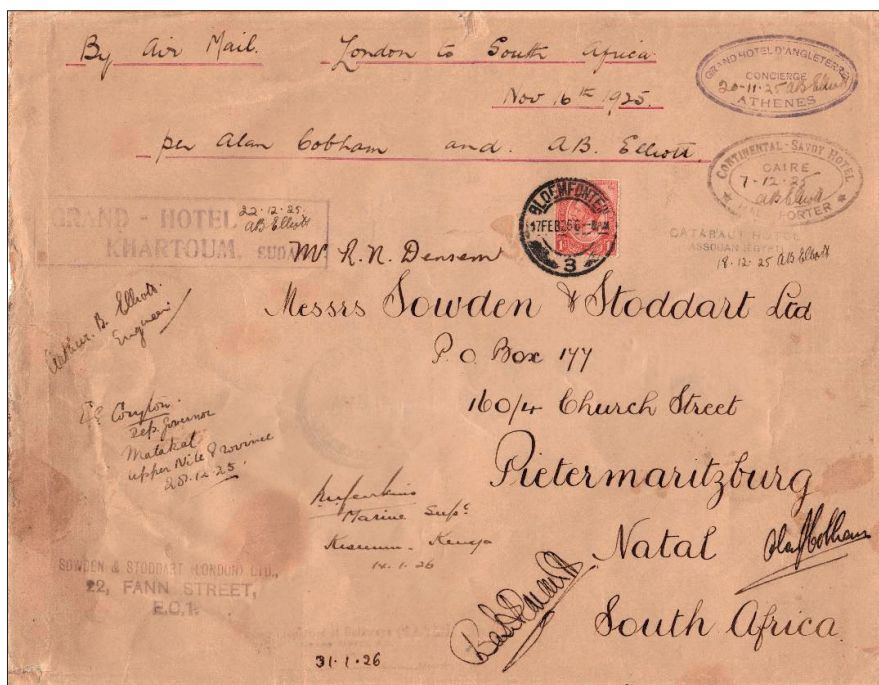 By Air Mail. London to South Africa
Nov 16th 1925.
per Alan Cobham and A.B. Elliott.
GRAND HOTEL D'ANGLETERRE
CONCIERGE
20-11-25 AB Elliott
ATHENES
CONTINENTAL-SAVOY HOTEL
CAIRE
7-12-25
AB Elliott
PORTER
CATARACT HOTEL
ASSOUAN
18.12.25 AB Elliott
GRAND - HOTEL
KHARTOUM. SUDAN
22.12.25.
AB Elliott
BLOEMFONTEIN
17 FEB 26
3
Mr R. N. Densem
Messrs Sowden & Stoddart Ltd
P.O. Box 177
160/4 Church Street
Pietermaritzburg
Natal
South Africa
Arthur. B. Elliott.
Engineer
Coryton.
Dep. Governor
Malakal
Upper Nile Province
28.12.25.
Marine Supt
Kisumu. Kenya
14.1.26
SOWDEN & STODDART (LONDON) LTD.,
22, FANN STREET,
E.C.1.
31.1.26